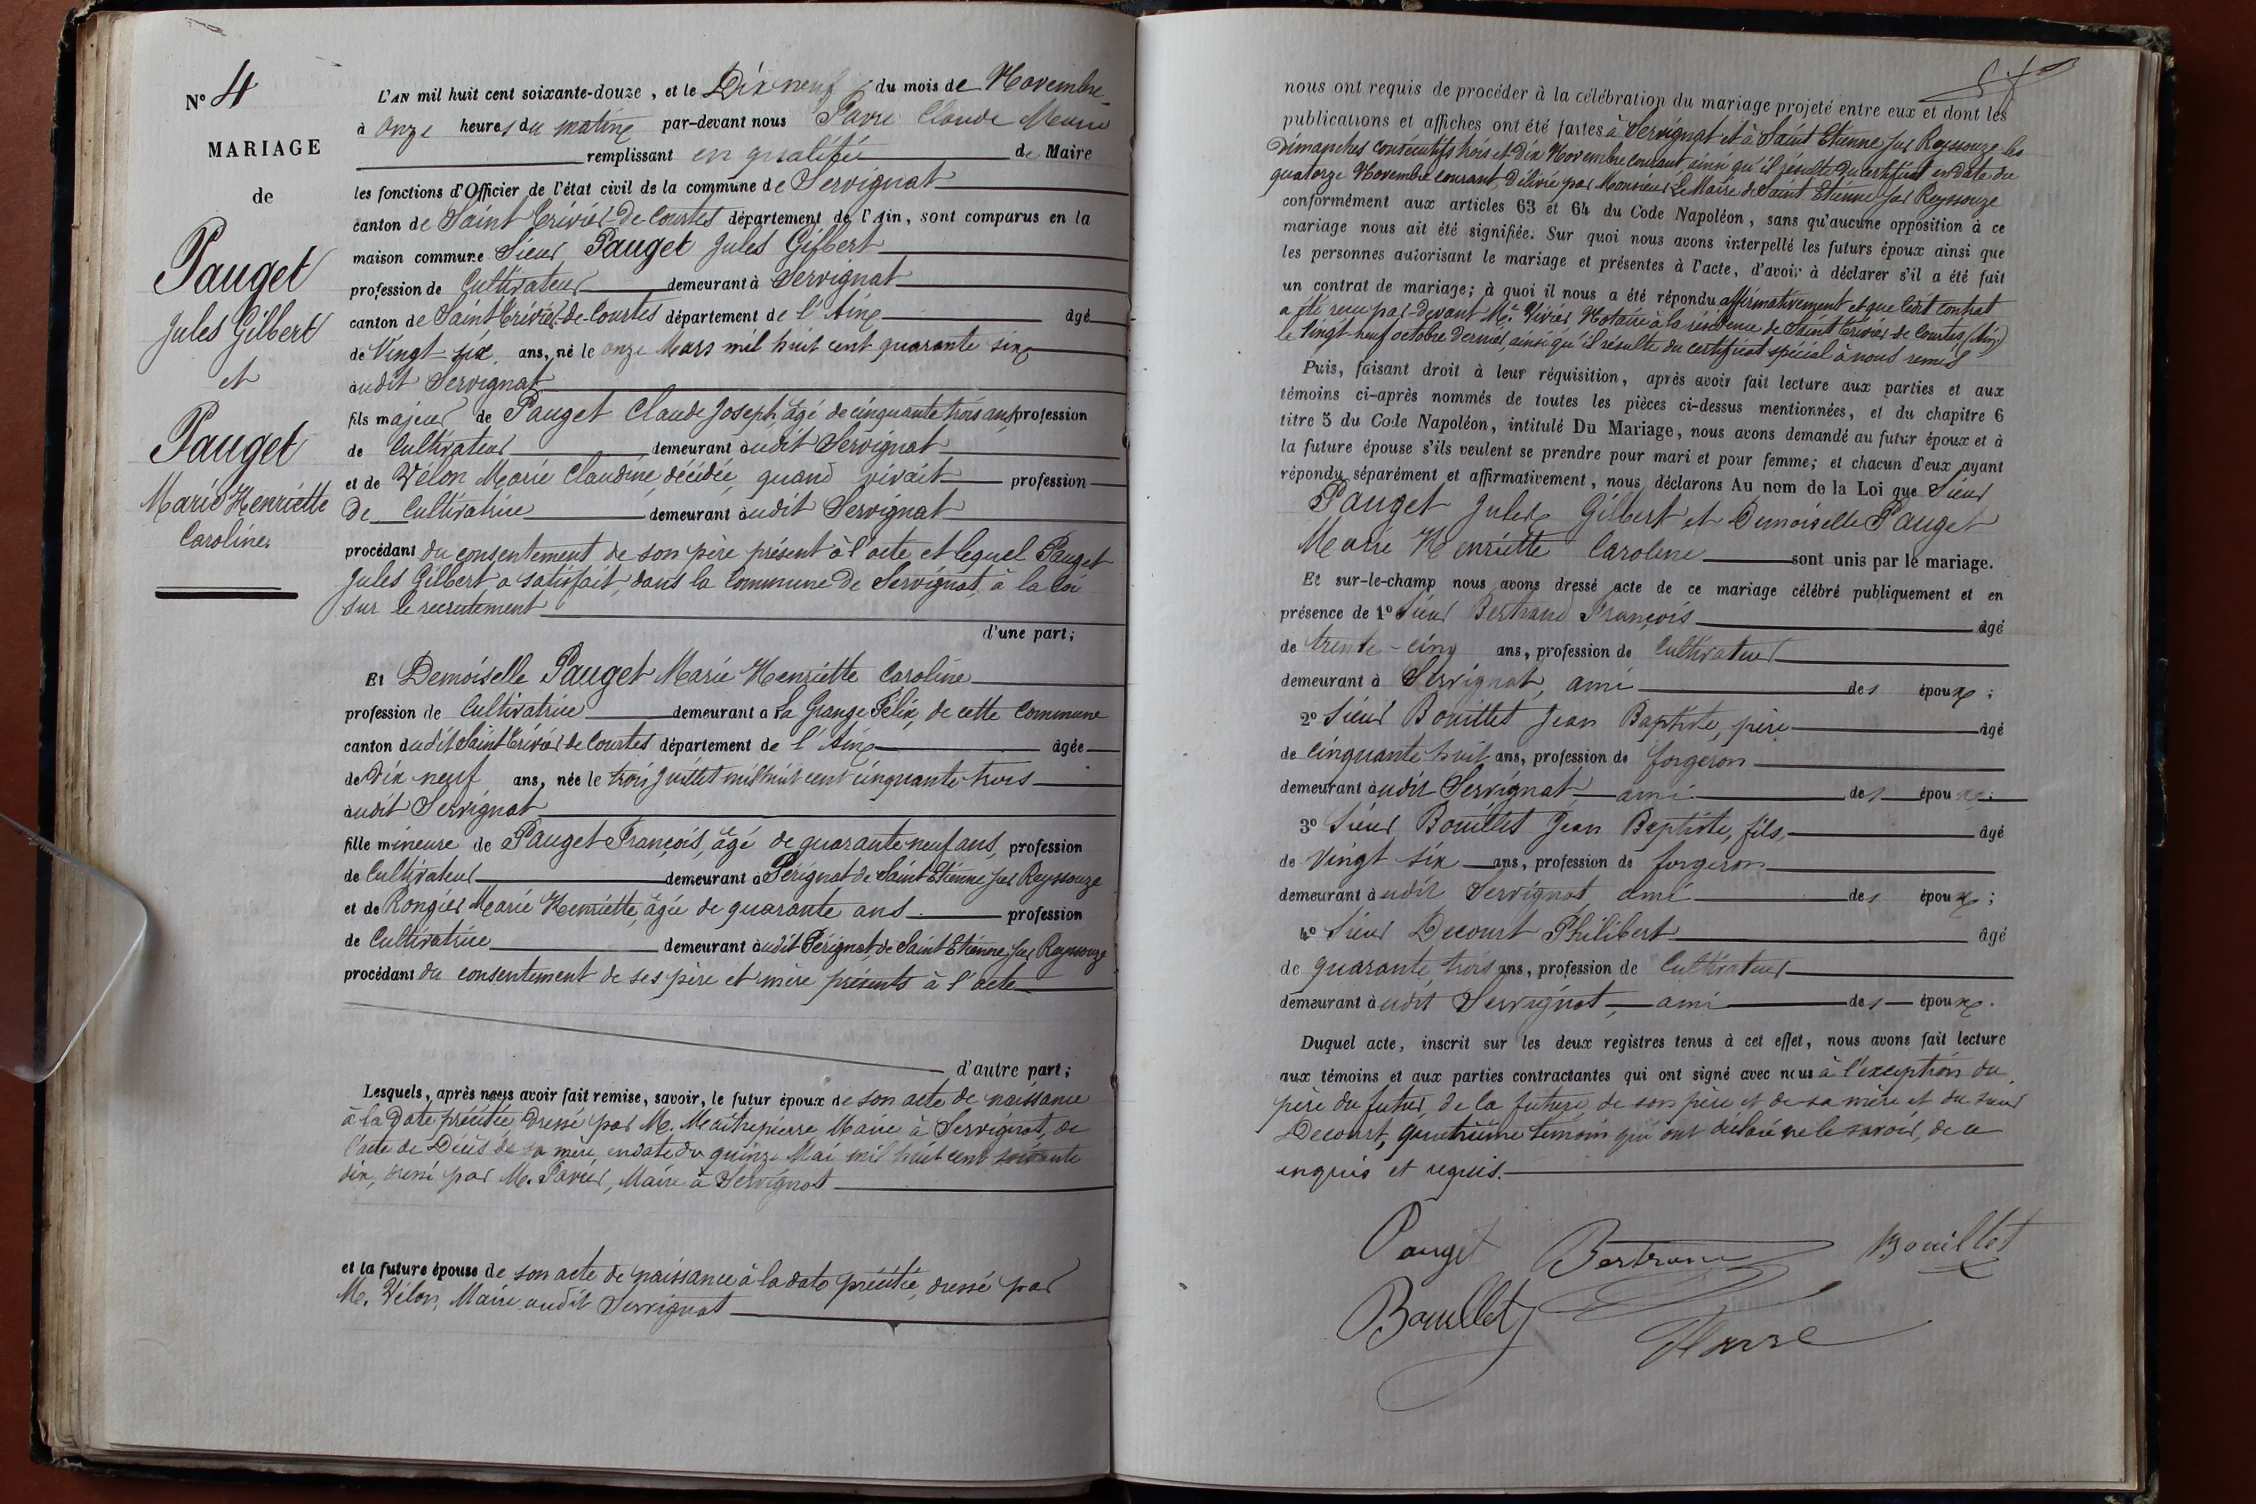 N° 4
MARIAGE
de
Pauget
Jules Gilbert
et
Pauget
Marie Henriette
Caroline
L'AN mil huit cent soixante-douze, et le Dix neuf du mois de Novembre
à onze heures du matin par-devant nous Claude Marie
remplissant en qualité de Maire
les fonctions d'Officier de l'état civil de la commune de Servignat
canton de Saint Trivier-de-Courtes département de l'Ain, sont comparus en la
maison commune Sieur Pauget Jules Gilbert
profession de Cultivateur demeurant à Servignat
canton de Saint Trivier-de-Courtes département de l'Ain âgé
de Vingt-six ans, né le onze Mars mil huit cent quarante six
audit Servignat
fils majeur de Pauget Claude Joseph, âgé de cinquante trois ans, profession
de Cultivateur demeurant audit Servignat
et de Vélon Marie Claudine, décédée, quand vivait profession
de Cultivatrice demeurant audit Servignat
procédant du consentement de son père présent à l'acte et lequel Pauget
Jules Gilbert a satisfait, dans la commune de Servignat, à la loi
sur le recrutement
d'une part;
Et Demoiselle Pauget Marie Henriette Caroline
profession de Cultivatrice demeurant à La Grange Félix, de cette commune
canton dudit Saint Trivier de Courtes département de l'Ain âgée
de Dix neuf ans, née le trois Juillet mil huit cent cinquante trois
audit Servignat
fille mineure de Pauget François, âgé de quarante neuf ans, profession
de Cultivateur demeurant à Sérignat de Saint Etienne sur Reyssouze
et de Rongier Marie Henriette, âgée de quarante ans profession
de Cultivatrice demeurant audit Sérignat, de Saint Etienne sur Reyssouze
procédant du consentement de ses père et mère présents à l'acte
d'autre part;
Lesquels, après nous avoir fait remise, savoir, le futur époux de son acte de naissance
à la date précitée, dressé par M. Maitrepierre, Maire à Servignat, de
l'acte de Décès de sa mère, en date du quinze Mai mil huit cent soixante
dix, dressé par M. Maire à Servignat
et la future épouse de son acte de naissance à la date précitée, dressé par
M. Vélon, Maire audit Servignat
nous ont requis de procéder à la célébration du mariage projeté entre eux et dont les
publications et affiches ont été faites à Servignat et à Saint Etienne sur Reyssouze les
Dimanches consécutifs trois et dix Novembre courant, ainsi qu'il résulte du certificat en date du
quatorze Novembre courant, délivré par Monsieur Le Maire de Saint Etienne sur Reyssouze
conformément aux articles 63 et 64 du Code Napoléon, sans qu'aucune opposition à ce
mariage nous ait été signifiée. Sur quoi nous avons interpellé les futurs époux ainsi que
les personnes autorisant le mariage et présentes à l'acte, d'avoir à déclarer s'il a été fait
un contrat de mariage; à quoi il nous a été répondu affirmativement et que ledit contrat
a été reçu par-devant Me. Notaire à la résidence de Saint Trivier de Courtes (Ain)
le Vingt-neuf octobre dernier, ainsi qu'il résulte du certificat spécial à nous remis
Puis, faisant droit à leur réquisition, après avoir fait lecture aux parties et aux
témoins ci-après nommés de toutes les pièces ci-dessus mentionnées, et du chapitre 6
titre 5 du Code Napoléon, intitulé Du Mariage, nous avons demandé au futur époux et à
la future épouse s'ils veulent se prendre pour mari et pour femme; et chacun d'eux ayant
répondu séparément et affirmativement, nous déclarons Au nom de la Loi que Sieur
Pauget Jules Gilbert et Demoiselle Pauget
Marie Henriette Caroline sont unis par le mariage.
Et sur-le-champ nous avons dressé acte de ce mariage célébré publiquement et en
présence de 1° Sieur Bertrand François âgé
de trente-cinq ans, profession de Cultivateur
demeurant à Servignat, ami des époux;
2° Sieur Bouillet Jean Baptiste, père âgé
de cinquante huit ans, profession de forgeron
demeurant audit Servignat, ami des époux;
3° Sieur Bouillet Jean Baptiste, fils, âgé
de Vingt six ans, profession de forgeron
demeurant audit Servignat, ami des époux;
4° Sieur Decourt Philibert âgé
de quarante trois ans, profession de Cultivateur
demeurant audit Servignat, ami des époux.
Duquel acte, inscrit sur les deux registres tenus à cet effet, nous avons fait lecture
aux témoins et aux parties contractantes qui ont signé avec nous à l'exception du
père du futur, de la future, de son père et de sa mère et du sieur
Decourt, quatrième témoin qui ont déclaré ne le savoir, de ce
enquis et requis.
Pauget Bertrand Bouillet
Bouillet